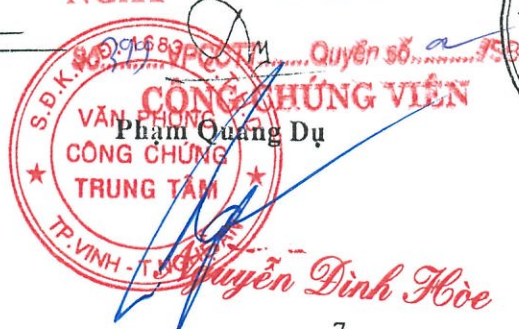 Quyển số
CÔNG CHỨNG VIÊN
Phạm Quang Dụ
VĂN PHÒNG
CÔNG CHỨNG
TRUNG TÂM
TP.VINH - T.NGHỆ AN
Nguyễn Đình Hòe
7